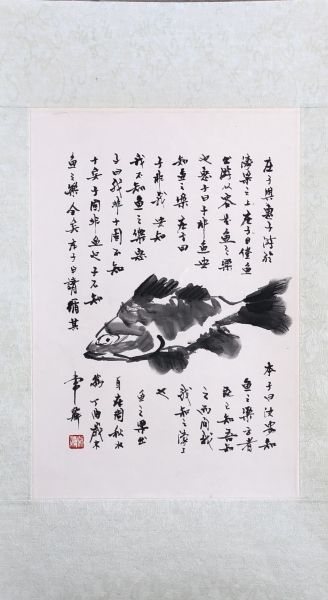 庄子與惠子游於
濠梁之上庄子曰鯈魚
出游從容是魚之樂
也惠子曰子非魚安
知魚之樂庄子曰
子非我安知
我不知魚之樂惠
子曰我非子固不知
子矣子固非魚也子不知
魚之樂全矣庄子曰請循其
本子曰汝安知
魚之樂云者
既已知吾知
之而問我
我知之濠上
也
魚之樂出
自庄周秋水
篇丁酉歲末